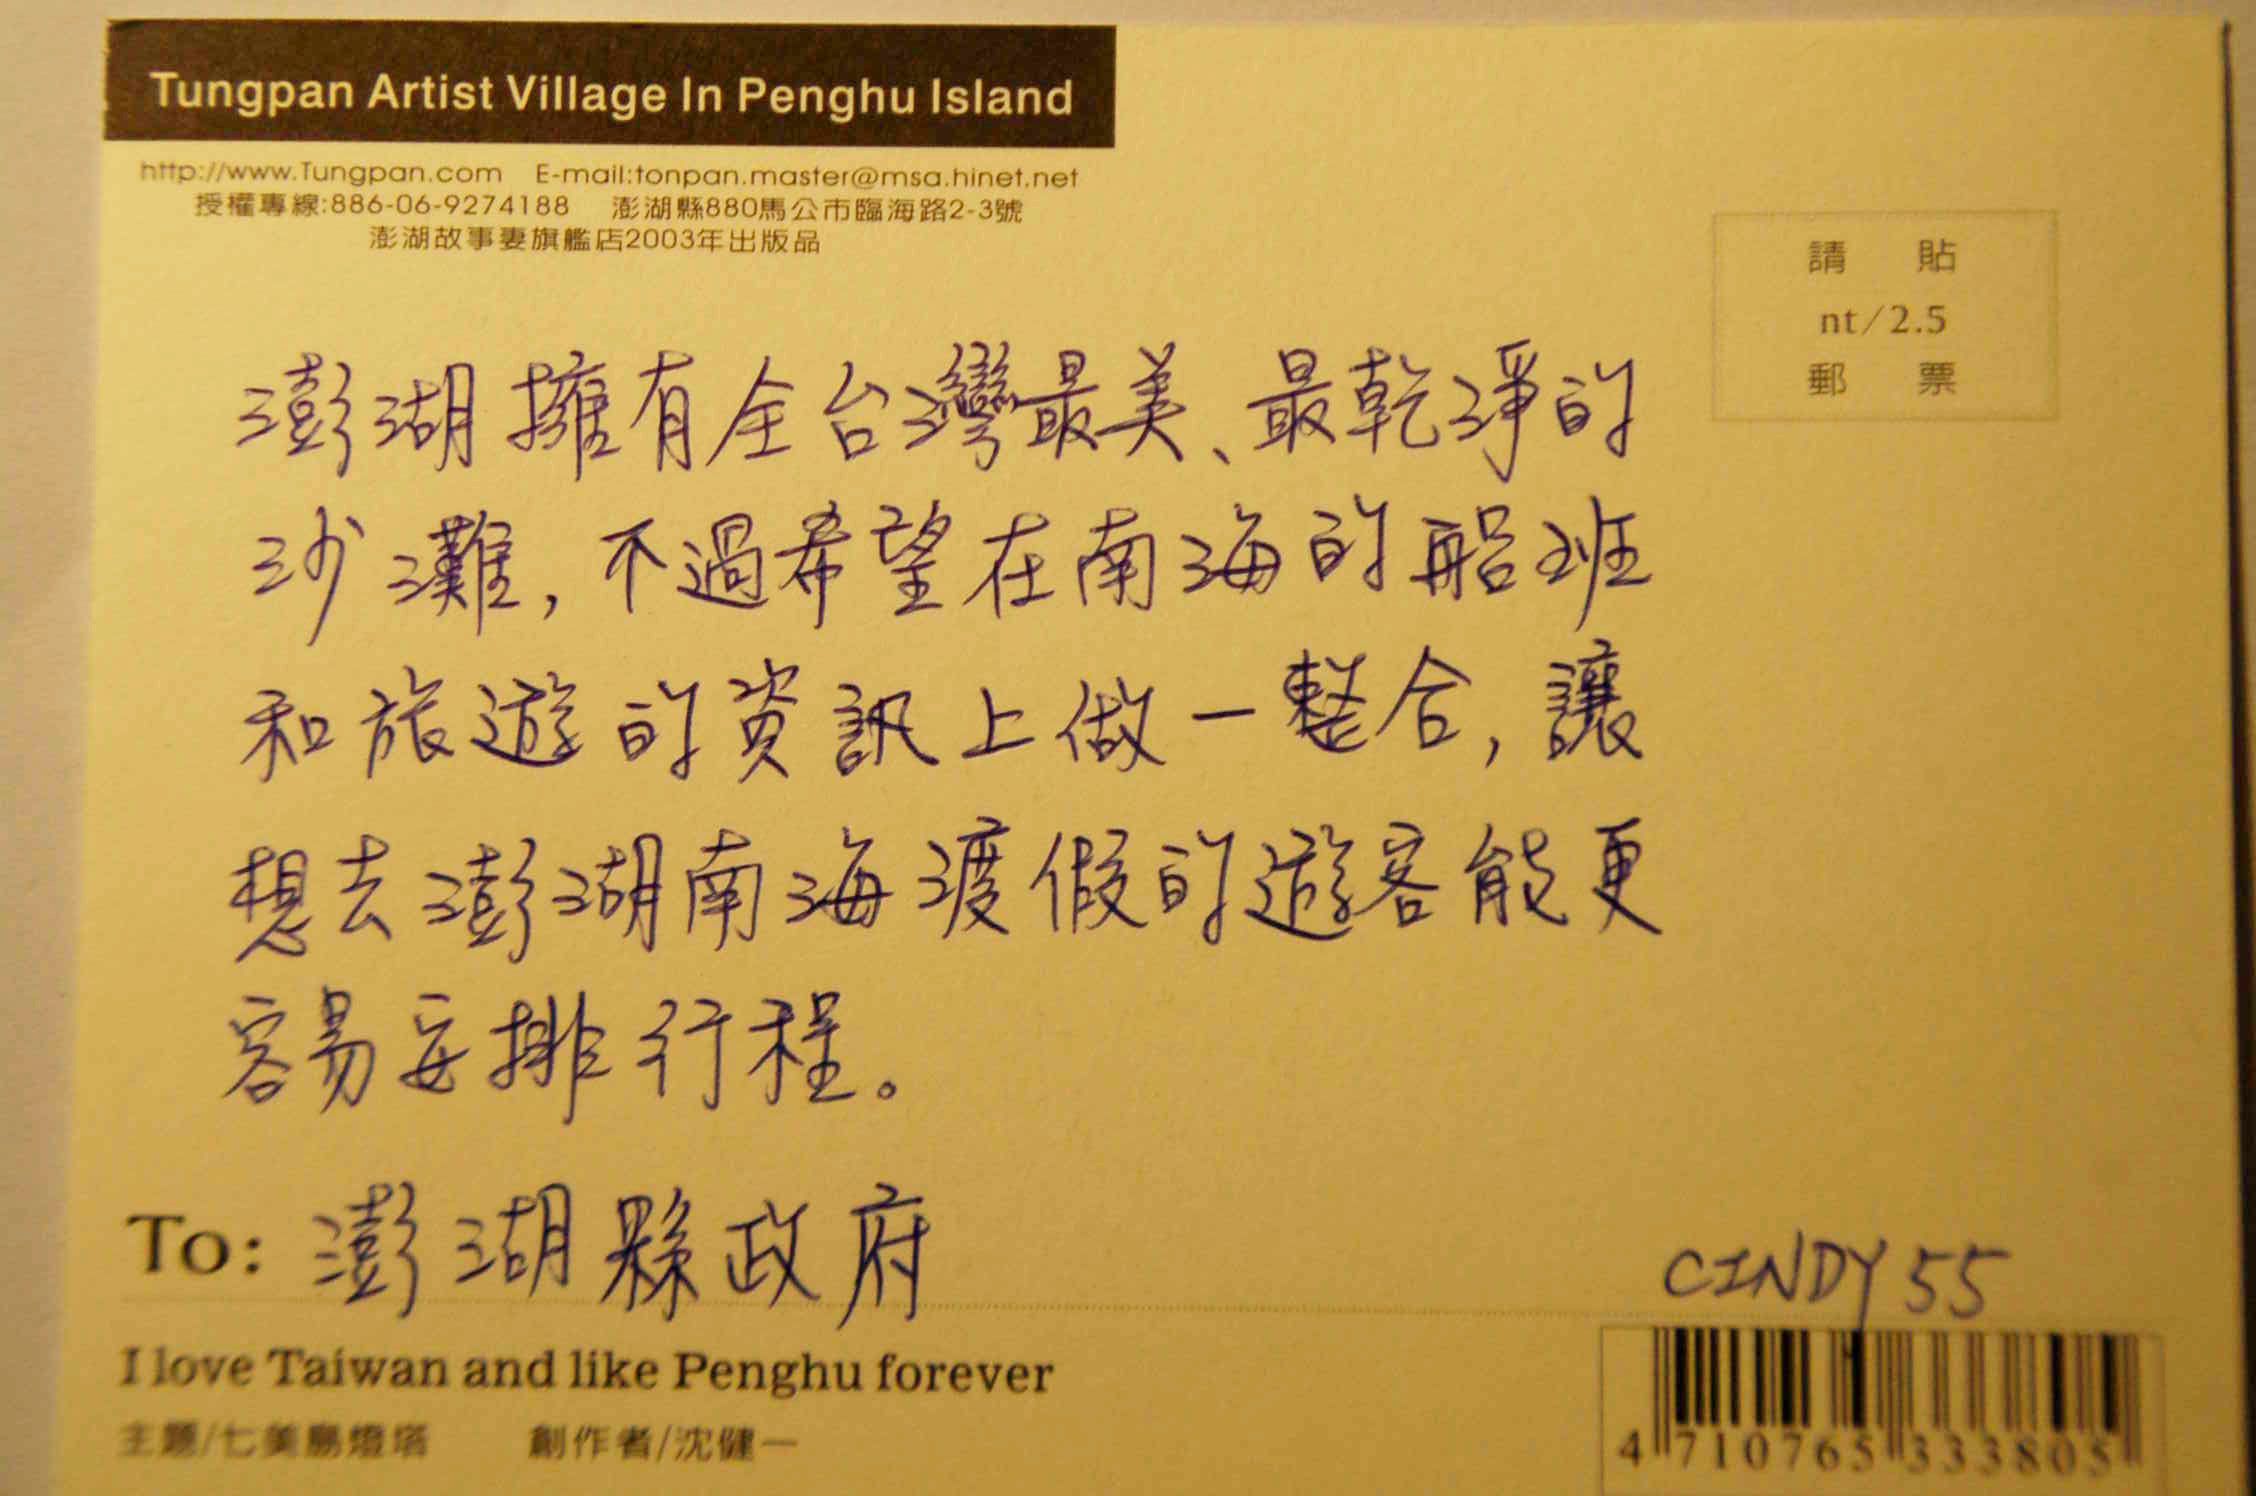 Tungpan Artist Village In Penghu Island
http://www.Tungpan.com E-mail:tonpan.master@msa.hinet.net
授權專線:886-06-9274188 澎湖縣880馬公市臨海路2-3號
澎湖故事妻旗艦店2003年出版品
請 貼
nt/2.5
郵 票
澎湖擁有全台灣最美、最乾淨的
沙灘,不過希望在南海的船班
和旅遊的資訊上做一整合,讓
想去澎湖南海渡假的遊客能更
容易安排行程。
To: 澎湖縣政府
CINDY 55
I love Taiwan and like Penghu forever
主題/七美島燈塔 創作者/沈健一
4 710765 333805